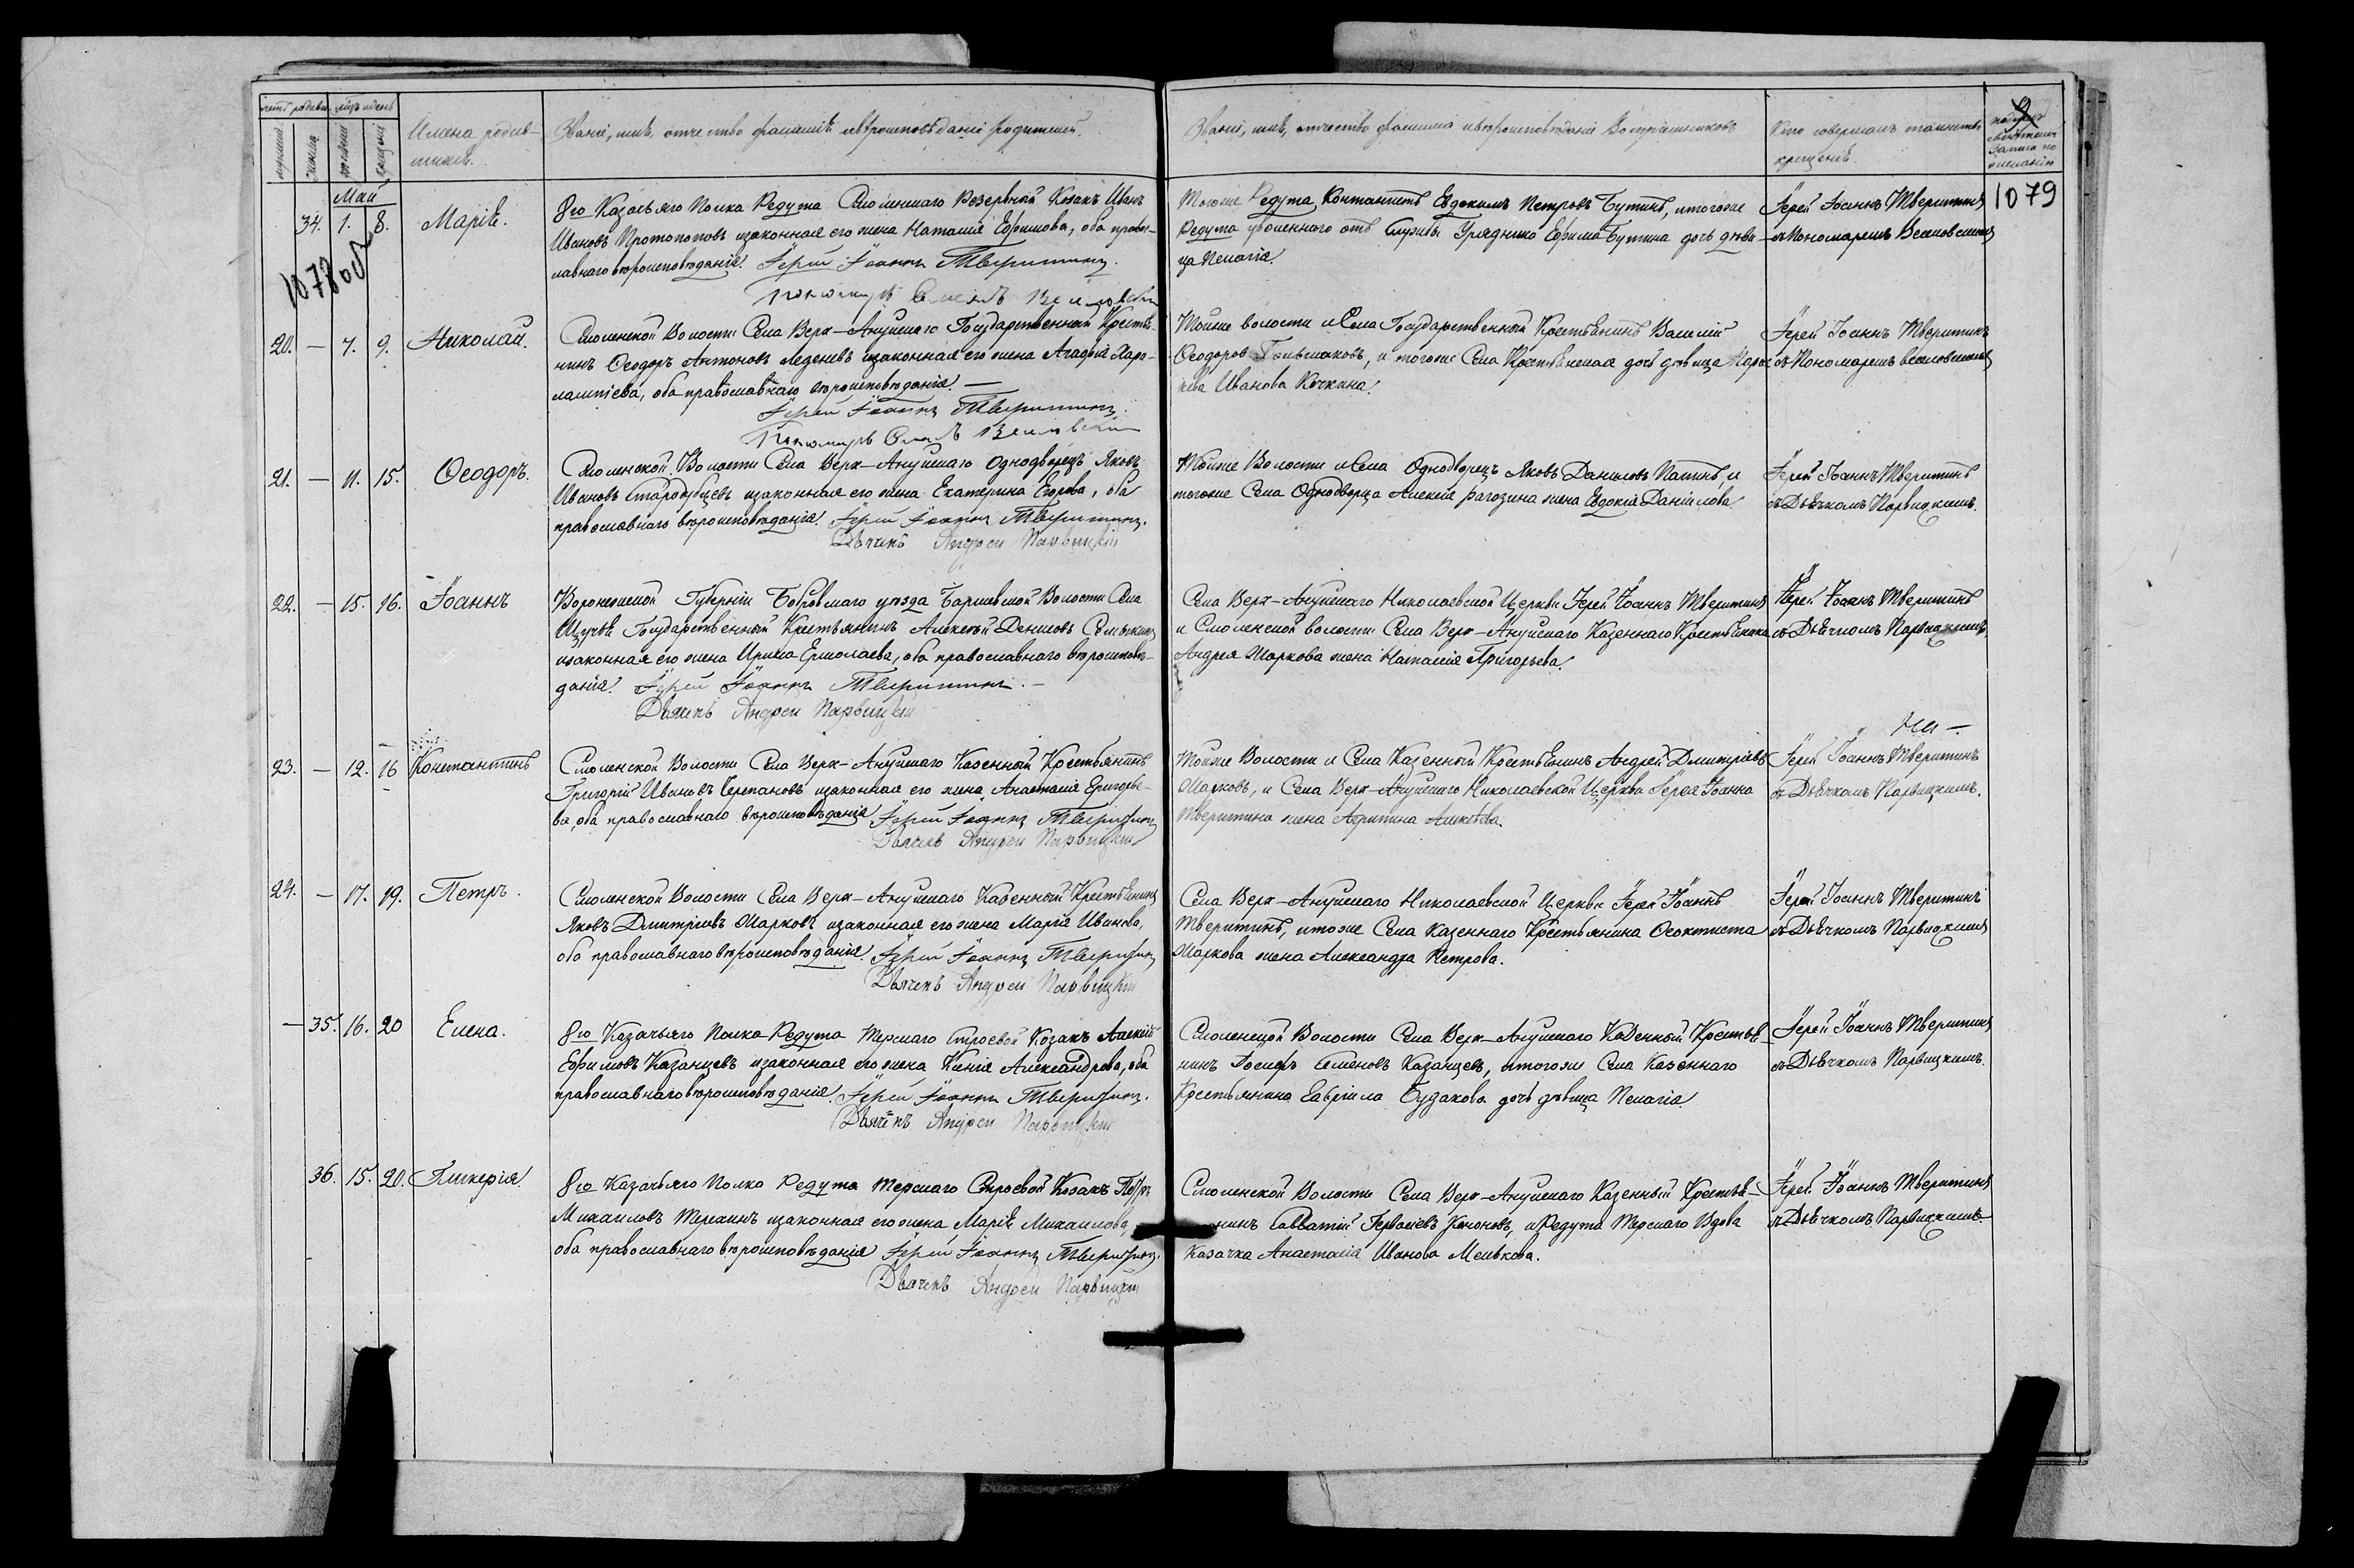 Имена родив-
шихся.
Званіе, имя, отчество фамилія и вѣроисповѣданіе родителей.
Званіе, имя, отчество фамилія и вѣроисповѣданіе Воспріемниковъ
Кто совершалъ таинство
крещенія.
1079
Май
34. 1. 8. Марія.
8го Казачьяго Полка Редута Смоленскаго Резервной Козакъ Иванъ
Ивановъ Протопоповъ изаконная его жена Наталія Ефимова, оба право-
славнаго вѣроисповѣданія. Іерей Іоаннъ Тверитинъ.
Пономарь Веселовскій
Тогоже Редута Евдокимъ Петровъ Бутинъ, итогоже
Редута уволеннаго отъ Службы Урядника Ефима Бутина дочь дѣви-
ца Пелагія.
Іерей Іоаннъ Тверитинъ
съ Пономаремъ Веселовскимъ
20. — 7. 9. Николай.
Смоленской Волости Села Верх-Ануйскаго Государственный Крестья-
нинъ Ѳеодоръ Антоновъ Леденевъ изаконная его жена Агафія Хара-
лампіева, оба православнаго вѣроисповѣданія. —
Іерей Іоаннъ Тверитинъ.
Пономарь Веселовскій
Тойже волости и Села Государственный Крестьянинъ Василій
Ѳеодоров, и тогоже Села Крестьянская дочь дѣвица
Иванова Кочкина.
Іерей Іоаннъ Тверитинъ
съ Пономаремъ Веселовскимъ
21. — 11. 15. Ѳеодоръ.
Смоленской Волости Села Верх-Ануйскаго Однодворецъ Яковъ
Ивановъ Стародубцевъ изаконная его жена Екатерина Егорова, оба
православнаго вѣроисповѣданія. Іерей Іоаннъ Тверитинъ.
Дьячекъ Андрей Парвицкій
Тойже Волости и Села Однодворецъ Яковъ Даниловъ Патинъ, и
тогоже Села Однодворца Алексія Рагозина жена Евдокія Даніилова
Іерей Іоаннъ Тверитинъ
съ Дьячкомъ Парвицкимъ.
22. — 15. 16. Іоаннъ
Воронежской Губерніи Бобровскаго уѣзда Волости Села
Щучья Государственный Крестьянинъ Алексѣй Денисовъ
изаконная его жена Ирина Ермолаева, оба православнаго вѣроисповѣ-
данія. Іерей Іоаннъ Тверитинъ. —
Дьячекъ Андрей Парвицкій
Села Верх-Ануйскаго Николаевской Церкви Іерей Іоаннъ Тверитинъ
и Смоленской волости Села Верх-Ануйскаго Казеннаго Крестьянина
Андрея Маркова жена Наталія Григорьева.
Іерей Іоаннъ Тверитинъ
съ Дьячкомъ Парвицкимъ.
23. — 12. 16 Константинъ
Смоленской Волости Села Верх-Ануйскаго Казенный Крестьянинъ
Григорій Ивановъ Черепановъ изаконная его жена Анастасія Григорье-
ва, оба православнаго вѣроисповѣданія Іерей Іоаннъ Тверитинъ
Дьячекъ Андрей Парвицкій
Тойже Волости и Села Казенный Крестьянинъ Андрей Дмитріевъ
Марковъ, и Села Верх-Ануйскаго Николаевской Церкви Іерея Іоанна
Тверитина жена Агрипина Алексѣева.
Іерей Іоаннъ Тверитинъ
съ Дьячкомъ Парвицкимъ.
24. — 17. 19. Петръ.
Смоленской Волости Села Верх-Ануйскаго Казенный Крестьянинъ
Яковъ Дмитріевъ Марковъ изаконная его жена Марія Иванова,
оба православнаго вѣроисповѣданія. Іерей Іоаннъ Тверитинъ
Дьячекъ Андрей Парвицкій
Села Верх-Ануйскаго Николаевской Церкви Іерей Іоаннъ
Тверитинъ, итогже Села Казеннаго Крестьянина Ѳеоктиста
Маркова жена Александра Петрова.
Іерей Іоаннъ Тверитинъ
съ Дьячкомъ Парвицкимъ
— 35. 16. 20 Елена.
8го Казачьяго Полка Редута Терскаго Строевой Козакъ Алексѣй
Ефимовъ Казанцевъ изаконная его жена Ксенія Александрова, оба
православнаго вѣроисповѣданія. Іерей Іоаннъ Тверитинъ.
Дьячекъ Андрей Парвицкій
Смоленской Волости Села Верх-Ануйскаго Казенный Крестья-
нинъ Іосифъ Семеновъ Казанцевъ, итогоже Села Казеннаго
Крестьянина Гавріила Будакова дочь дѣвица Пелагія.
Іерей Іоаннъ Тверитинъ
съ Дьячкомъ Парвицкимъ.
36. 15. 20. Гликерія.
8го Казачьяго Полка Редута Терскаго Строевой Козакъ Петръ
Михаиловъ изаконная его жена Марія Михаилова,
оба православнаго вѣроисповѣданія Іерей Іоаннъ Тверитинъ.
Дьячекъ Андрей Парвицкій
Смоленской Волости Села Верх-Ануйскаго Казенный Крестья-
нинъ Савватій Гервасіевъ Кононовъ, и Редута Терскаго Вдова
Казачка Анастасія Иванова Мелькова.
Іерей Іоаннъ Тверитинъ
съ Дьячкомъ Парвицкимъ